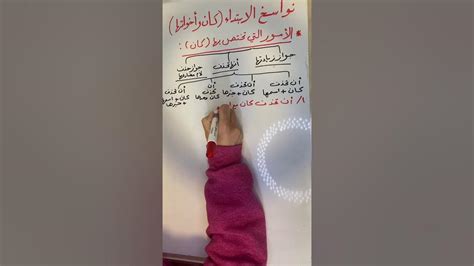 نواسخ الابتداء (كان وأخواتها)
* الأمور التي تختص بها (كان):
جواز زيادتها أن تحذف جواز حذف
لام مضارعها
أن تحذف أن تحذف أن أن تحذف
كان + اسمها كان + خبرها تحذف كان + اسمها
كان وحدها + خبرها
١/ أن تحذف كان